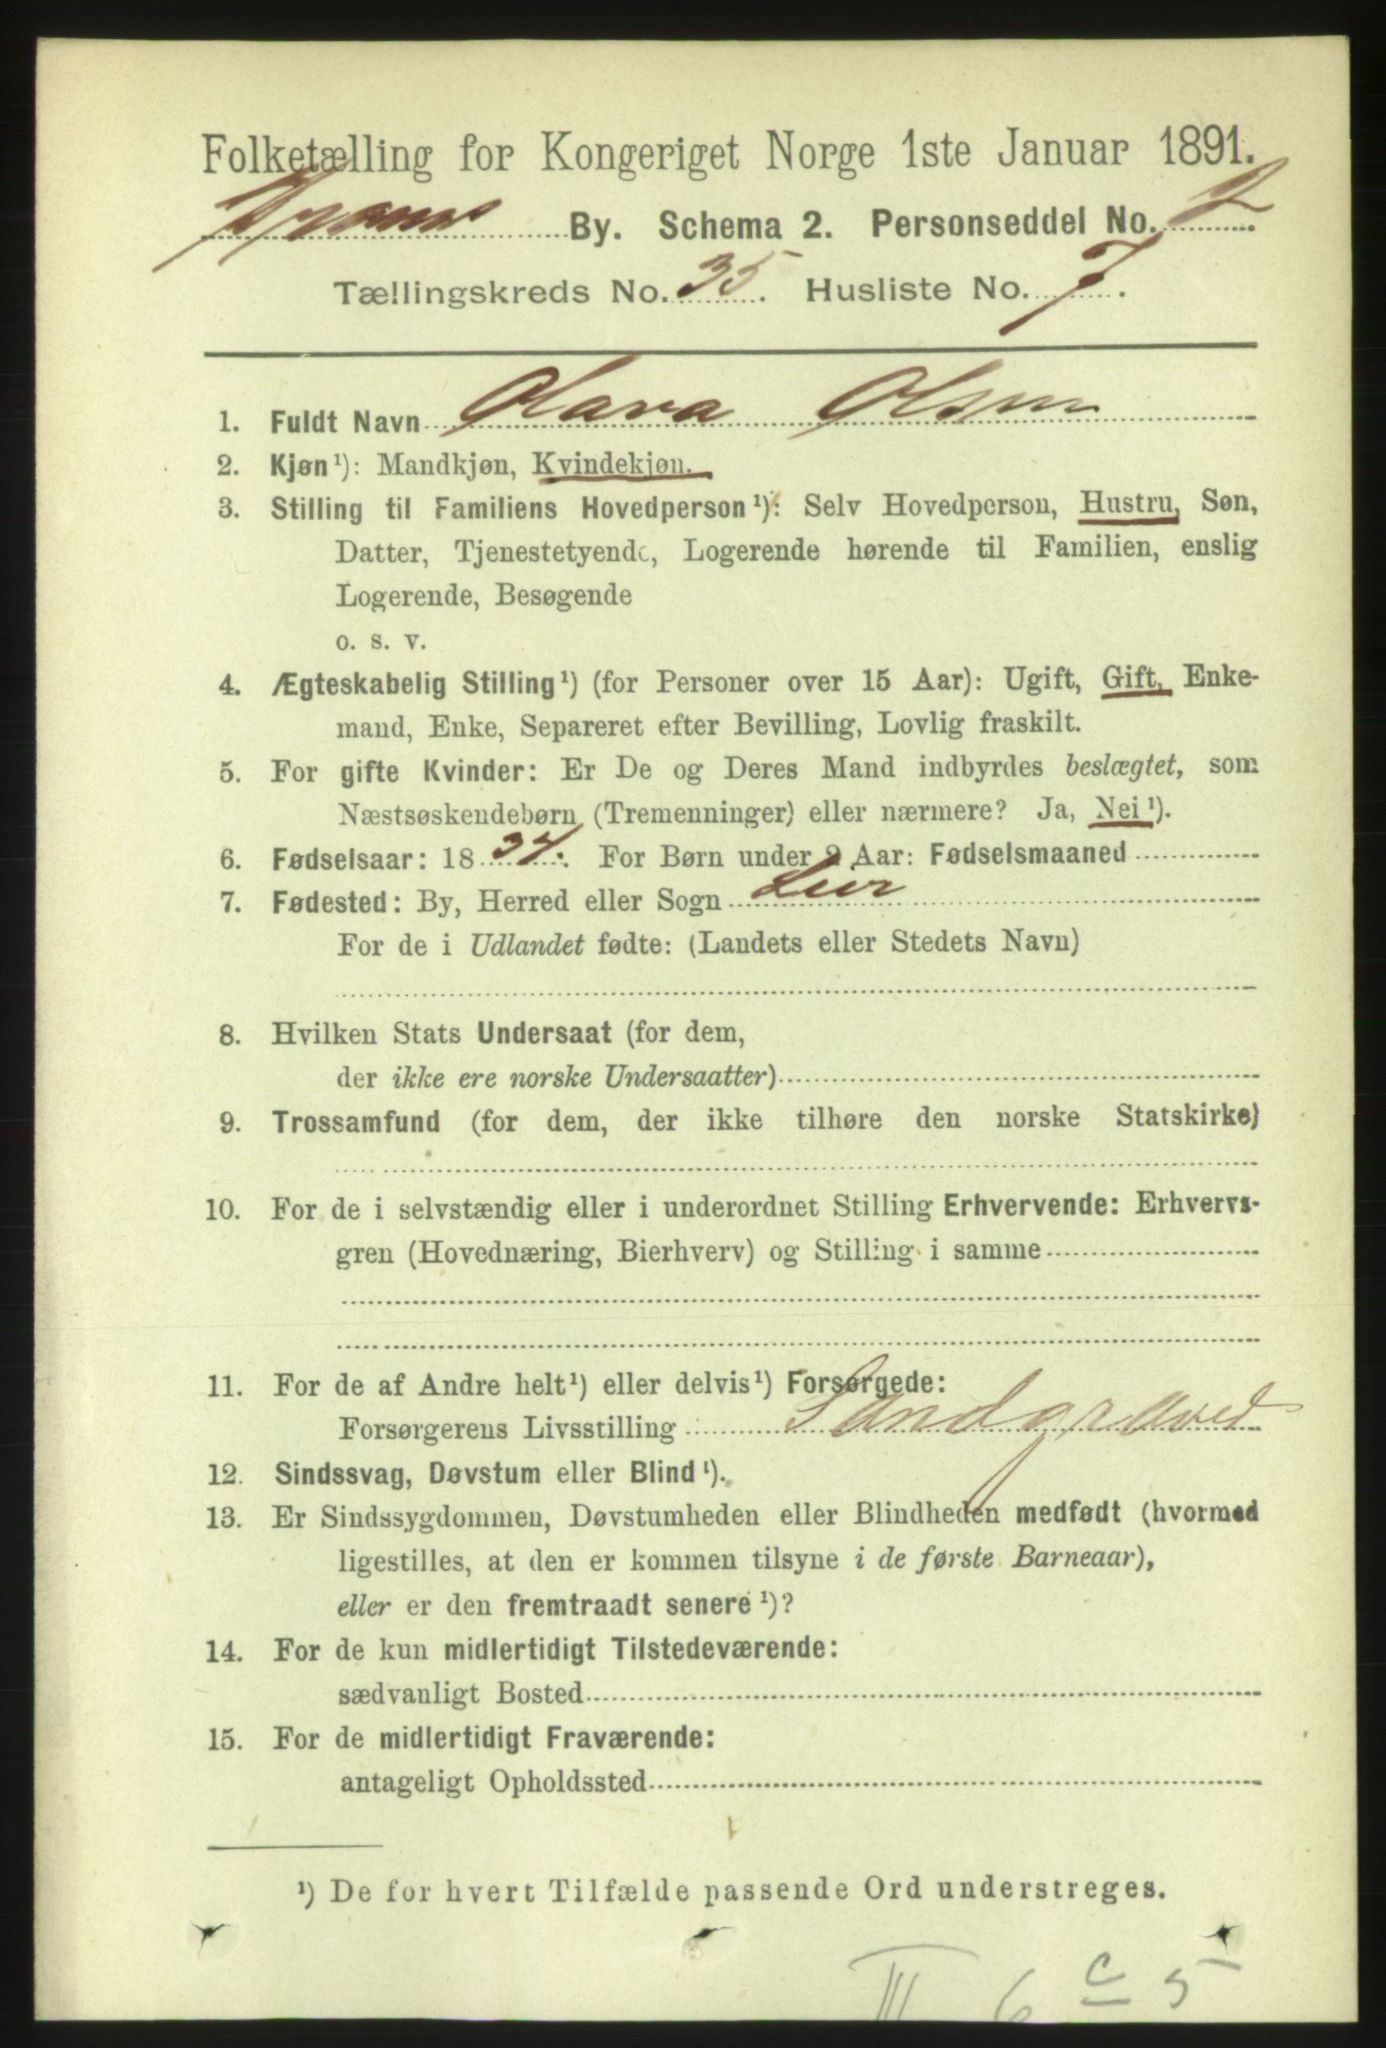 Folketælling for Kongeriget Norge 1ste Januar 1891.
By. Schema 2. Personseddel No. 2
Tællingskreds No. 35. Husliste No. 7.
1. Fuldt Navn Olava Olsen
2. Kjøn ¹): Mandkjøn, Kvindekjøn.
3. Stilling til Familiens Hovedperson ¹): Selv Hovedperson, Hustru, Søn,
Datter, Tjenestetyende, Logerende hørende til Familien, enslig
Logerende, Besøgende
o. s. v.
4. Ægteskabelig Stilling ¹) (for Personer over 15 Aar): Ugift, Gift, Enke-
mand, Enke, Separeret efter Bevilling, Lovlig fraskilt.
5. For gifte Kvinder: Er De og Deres Mand indbyrdes beslægtet, som
Næstsøskendebørn (Tremenninger) eller nærmere? Ja, Nei ¹).
6. Fødselsaar: 1834. For Børn under 2 Aar: Fødselsmaaned
7. Fødested: By, Herred eller Sogn Lier
For de i Udlandet fødte: (Landets eller Stedets Navn)
8. Hvilken Stats Undersaat (for dem,
der ikke ere norske Undersaatter)
9. Trossamfund (for dem, der ikke tilhøre den norske Statskirke)
10. For de i selvstændig eller i underordnet Stilling Erhvervende: Erhvervs-
gren (Hovednæring, Bierhverv) og Stilling i samme
11. For de af Andre helt ¹) eller delvis ¹) Forsørgede:
Forsørgerens Livsstilling
12. Sindssvag, Døvstum eller Blind ¹).
13. Er Sindssygdommen, Døvstumheden eller Blindheden medfødt (hvormed
ligestilles, at den er kommen tilsyne i de første Barneaar),
eller er den fremtraadt senere ¹)?
14. For de kun midlertidigt Tilstedeværende:
sædvanligt Bosted
15. For de midlertidigt Fraværende:
antageligt Opholdssted
¹) De for hvert Tilfælde passende Ord understreges.
III 6 c 5